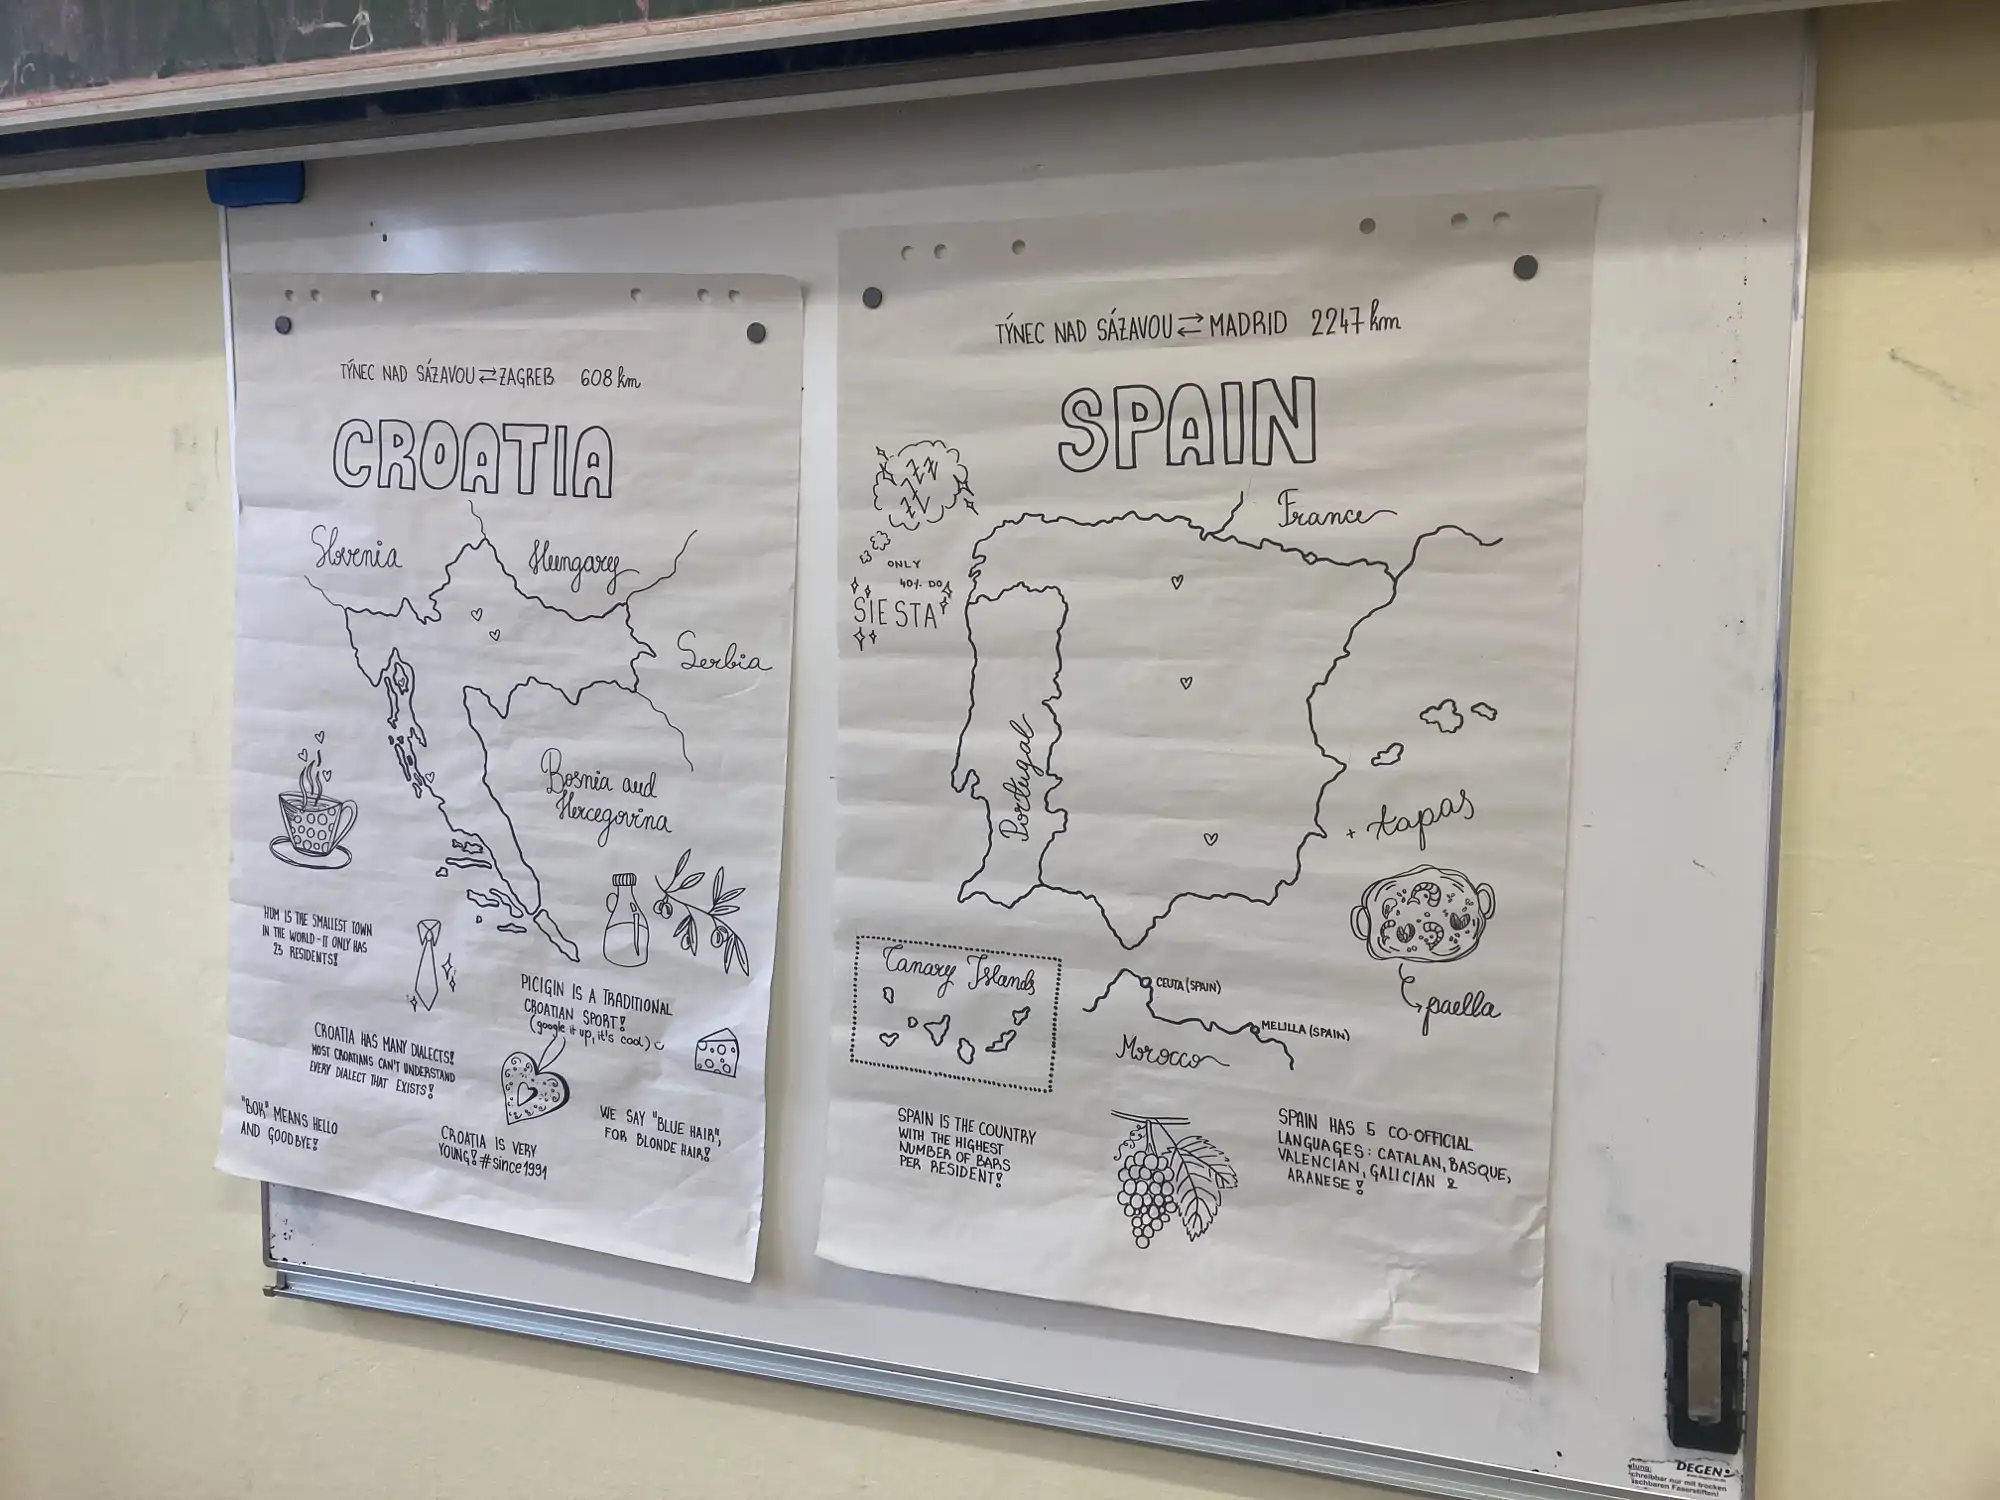 TÝNEC NAD SÁZAVOU ⇄ ZAGREB 608 km
CROATIA
Slovenia
Hungary
Serbia
Bosnia and
Hercegovina
HUM IS THE SMALLEST TOWN
IN THE WORLD - IT ONLY HAS
23 RESIDENTS!
PICIGIN IS A TRADITIONAL
CROATIAN SPORT!
(google it up, it's cool)
CROATIA HAS MANY DIALECTS!
MOST CROATIANS CAN'T UNDERSTAND
EVERY DIALECT THAT EXISTS!
"BOK" MEANS HELLO
AND GOODBYE!
CROATIA IS VERY
YOUNG! #since1991
WE SAY "BLUE HAIR",
FOR BLONDE HAIR!
TÝNEC NAD SÁZAVOU ⇄ MADRID 2247 km
SPAIN
ZZZ
ZZ
ONLY
40% DO
SIESTA
France
Portugal
+ tapas
paella
Canary Islands
CEUTA (SPAIN)
MELILLA (SPAIN)
Morocco
SPAIN IS THE COUNTRY
WITH THE HIGHEST
NUMBER OF BARS
PER RESIDENT!
SPAIN HAS 5 CO-OFFICIAL
LANGUAGES: CATALAN, BASQUE,
VALENCIAN, GALICIAN &
ARANESE!
DEGEN
chreibbar nur mit trocken
ischbaren Faserstiften!